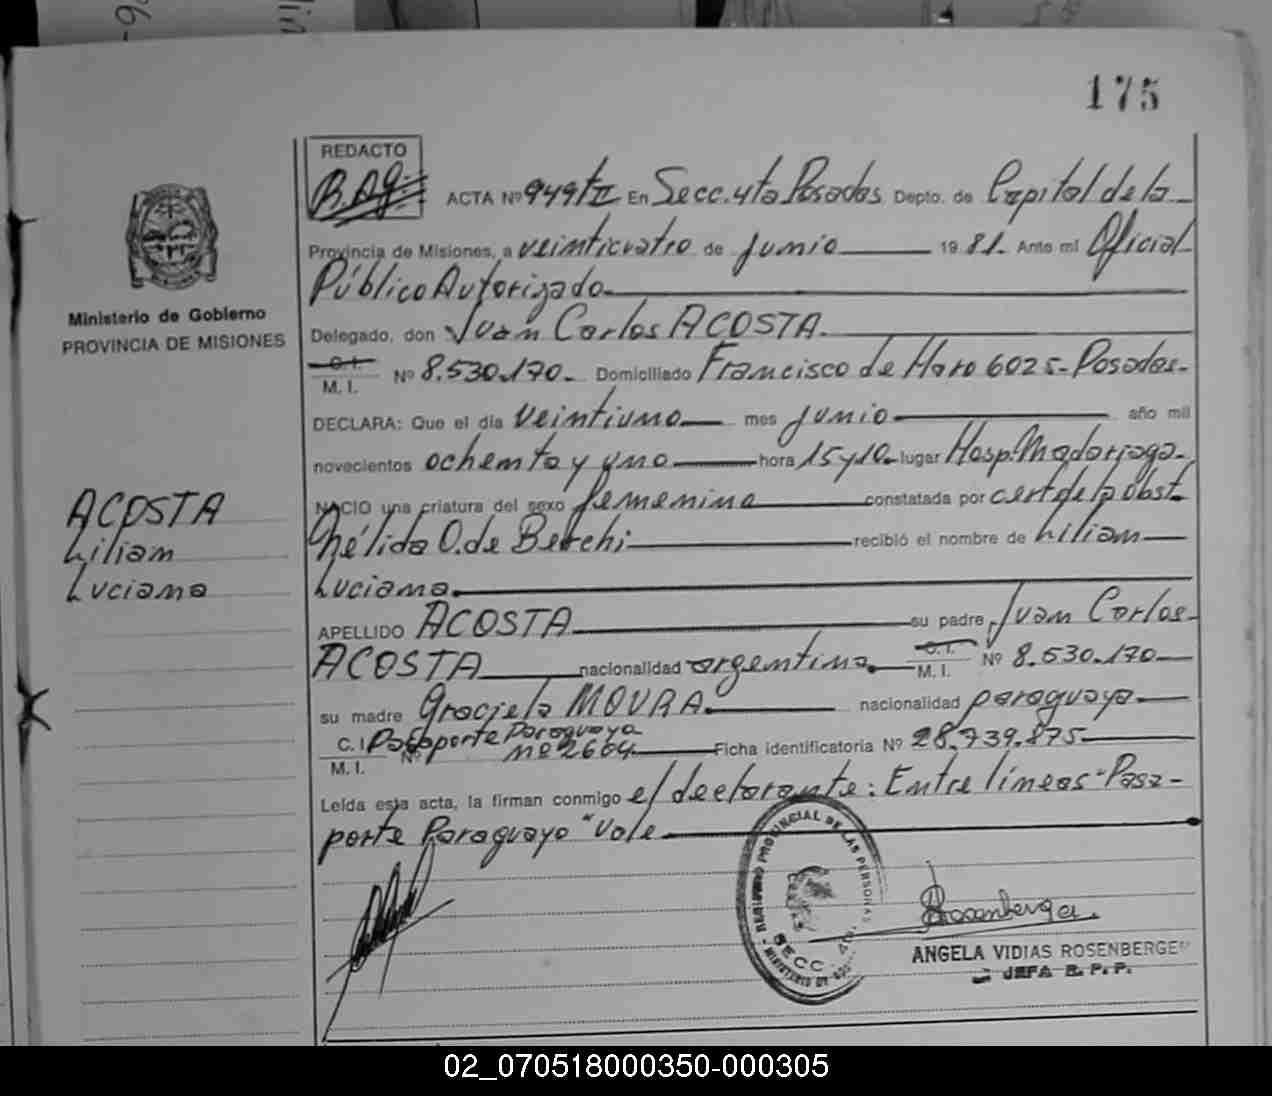 175
REDACTO
ACTA Nº 949 tº II En Secc. 4ta Posadas Depto. de Capital de la
Provincia de Misiones, a veinticuatro de junio 19 81. Ante mí Oficial
Público Autorizado
Delegado, don Juan Carlos ACOSTA.
C. I.
M. I. Nº 8.530.170. Domiciliado Francisco de Haro 6025 - Posadas -
DECLARA: Que el día veintiuno mes junio año mil
novecientos ochenta y uno hora 15 y 10 lugar Hosp. Madariaga.
NACIO una criatura del sexo femenino constatada por cert de la obst.
Nélida O. de Berchi recibió el nombre de Liliam
Luciana.
APELLIDO ACOSTA su padre Juan Carlos
ACOSTA nacionalidad argentina. C. I.
M. I. Nº 8.530.170
su madre Graciela MOURA. nacionalidad paraguaya
C. I.
M. I. Nº Pasaporte Paraguayo
nº 2604 Ficha identificatoria Nº 28.739.875
Leída esta acta, la firman conmigo el declarante: Entre líneas "Pasa-
porte Paraguayo" Vale
Ministerio de Gobierno
PROVINCIA DE MISIONES
ACOSTA
Liliam
Luciana
REGISTRO PROVINCIAL DE LAS PERSONAS
SECC. 4a.
MINISTERIO DE
Rosenberger
ANGELA VIDIAS ROSENBERGER
JEFA R. P. P.
02_070518000350-000305